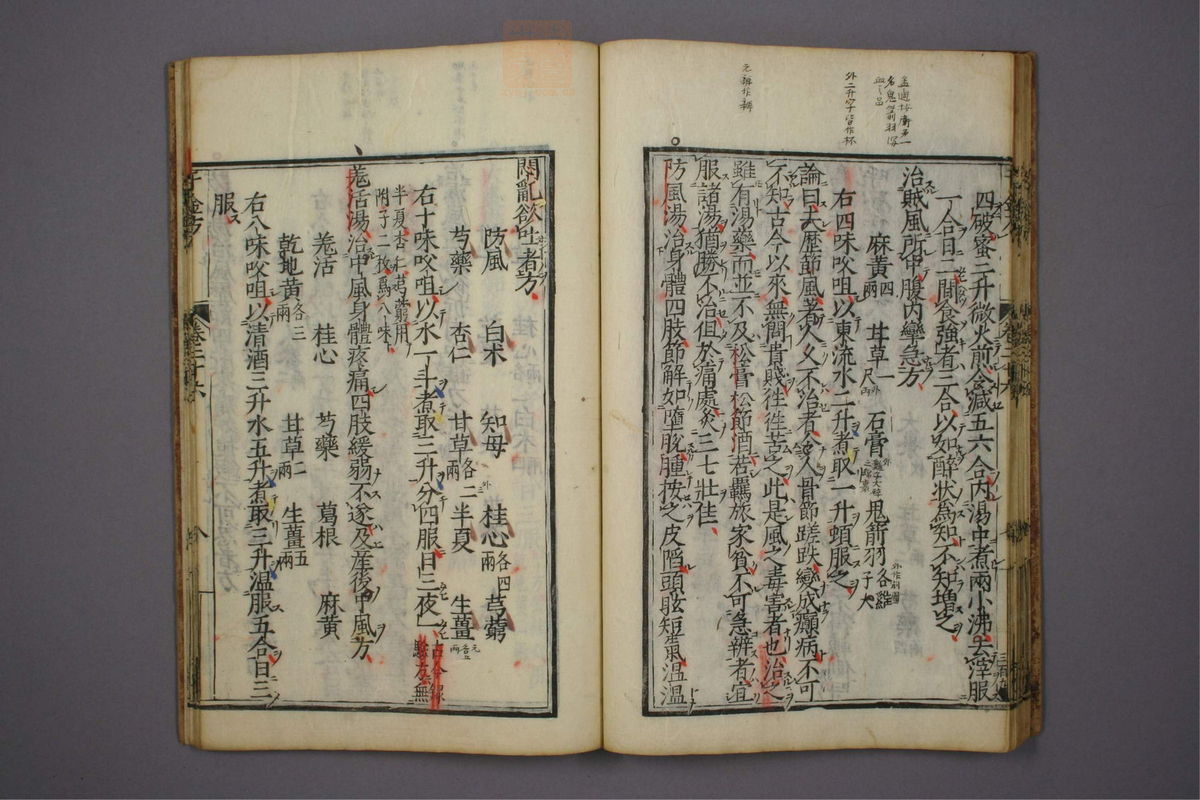 四破蜜三升微火煎令減五六合內湯中煮兩小沸去滓服
一合日二間食強者二合以如醉狀為知不知增之
治賊風所中腹內攣急方
麻黃四兩 甘草一尺 石膏 鬼箭羽各雞子大
右四味㕮咀以東流水二升煮取一升頓服之
論曰夫歷節風著人久不治者令人骨節蹉跌變成癲病不可
不知古今以來無問貴賤往往苦之此是風之毒害者也治之
雖有湯藥而並不及松膏松節酒若羈旅家貧不可急辨者宜
服諸湯猶勝不治但於痛處灸三七壯佳
防風湯治身體四肢節解如墮脫腫按之皮陷頭眩短氣溫溫
悶亂欲吐者方
防風 白朮 知母 桂心各四兩 芎藭
芍藥 杏仁 甘草各二兩 半夏 生薑
右十味㕮咀以水一斗煮取三升分四服日三夜一古今錄驗方無
半夏杏仁芎藭用附子二枚為八味
羗活湯治中風身體疼痛四肢緩弱不遂及產後中風方
羗活 桂心 芍藥 葛根 麻黃
乾地黃各三兩 甘草二兩 生薑五兩
右八味㕮咀以清酒三升水五升煮取三升溫服五合日三
服
千金方
卷二十六
外二升字皆作杯
元辨作辦